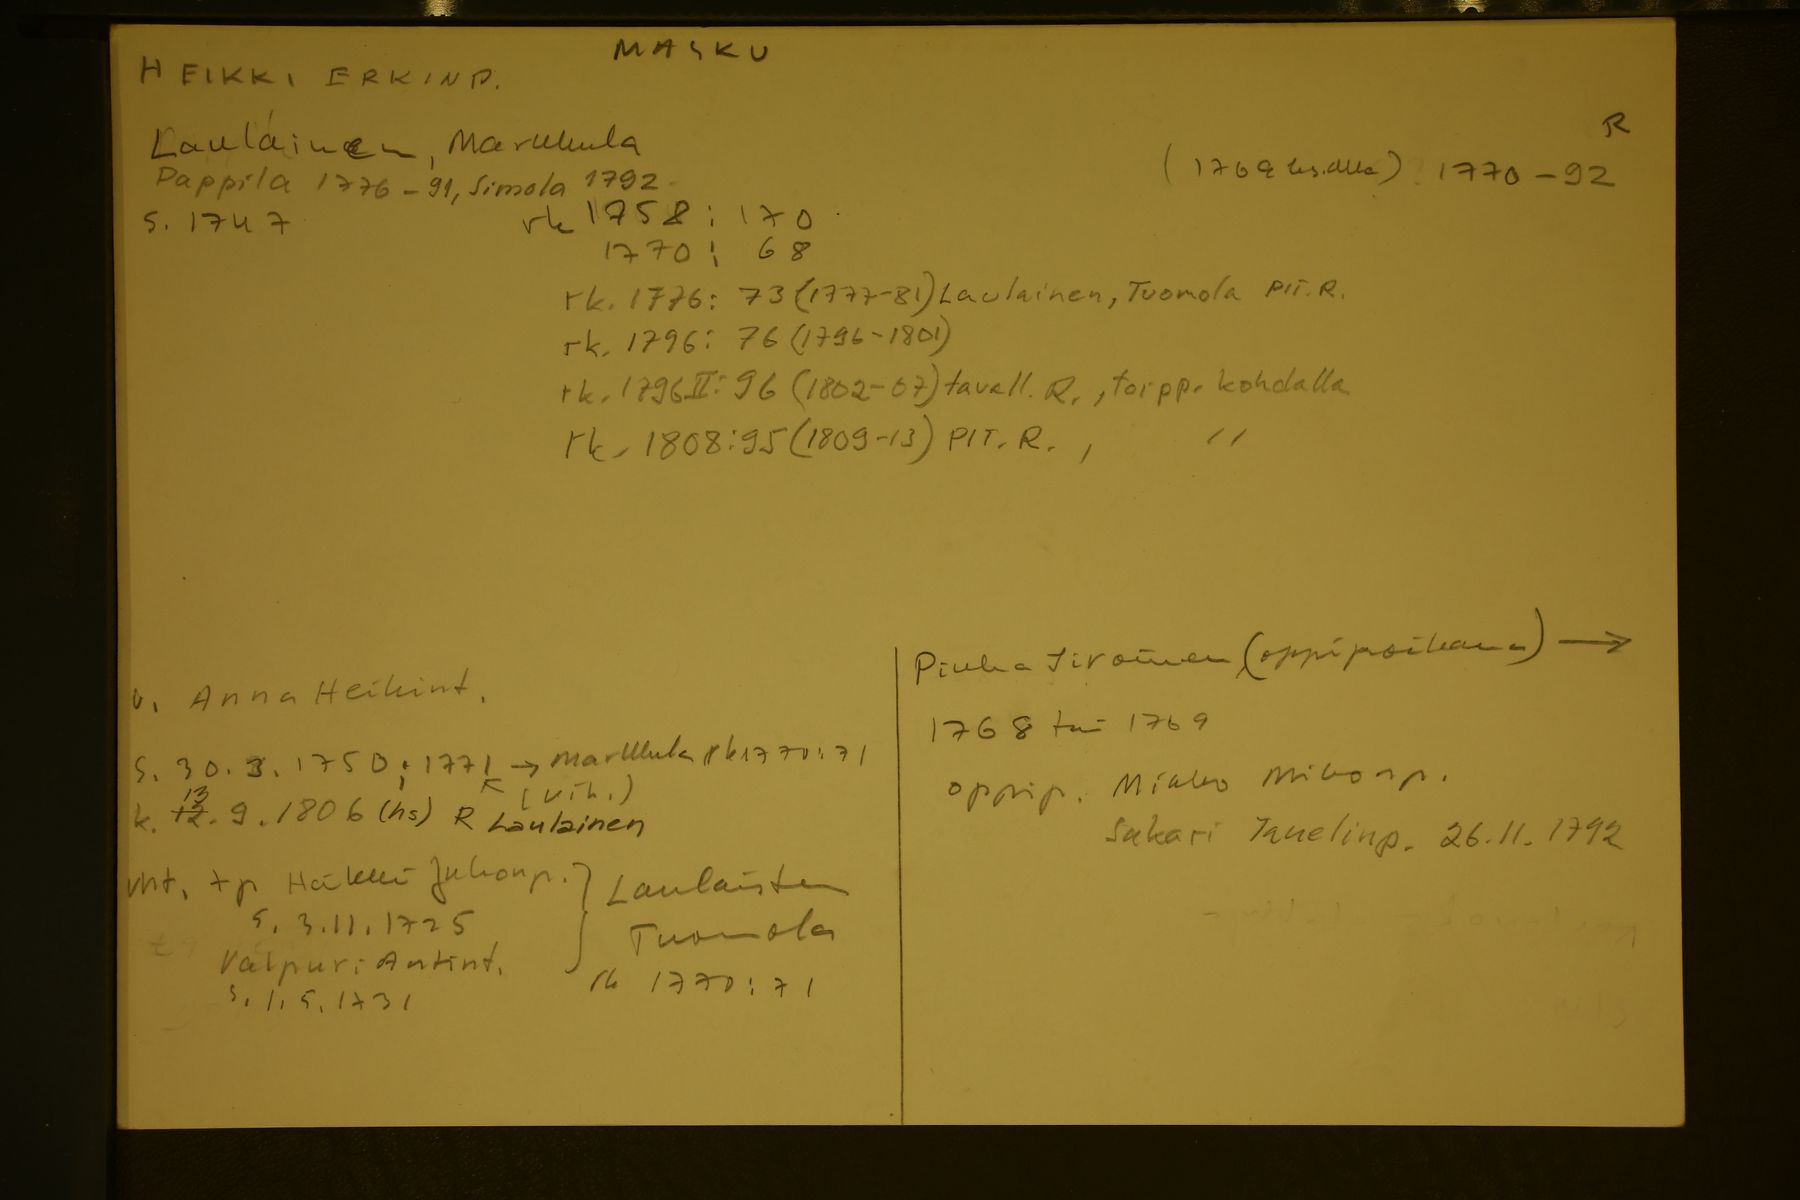 MASKU
HEIKKI ERKINP.
R
Laulainen, Markkula
(1769 ks. alla) 1770-92
Pappila 1776-91, Simola 1792
s. 1747
rk 1758: 170
1770: 68
rk. 1776: 73 (1777-81) Laulainen, Tuomola PIT. R.
rk. 1796: 76 (1796-1801)
rk. 1796 II: 96 (1802-07) tavall. R., torpp. kohdalla
rk. 1808: 95 (1809-13) PIT. R., "
v. Anna Heikint.
s. 30.3.1750; 1771 → Markkula rk 1770: 71
(vih.)
13
k. 12.9.1806 (hs) R Laulainen
vht. tp Heikki Juhonp.
s. 3.11.1725
Valpuri Antint.
s. 1.5.1731
Laulaisten
Tuomola
rk 1770: 71
(oppipoikana) →
1768 tai 1769
oppip. Mikko Mikonp.
Sakari Tauelinp. 26.11.1792